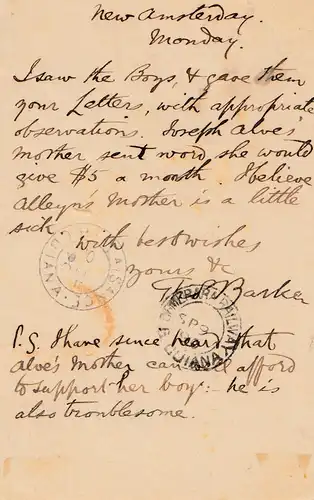 New Amsterday.
Monday.
I saw the Boys, & gave them
your Letters, with appropriate
observations. Joseph Alve's
mother sent word, she would
give $5 a month. I believe
Alleyns Mother is a little
sick
with best wishes
yours &
Barker
P.S. I have since heard that
Alve's Mother can afford
to support her boy: - he is
also troublesome.
RAILWAY